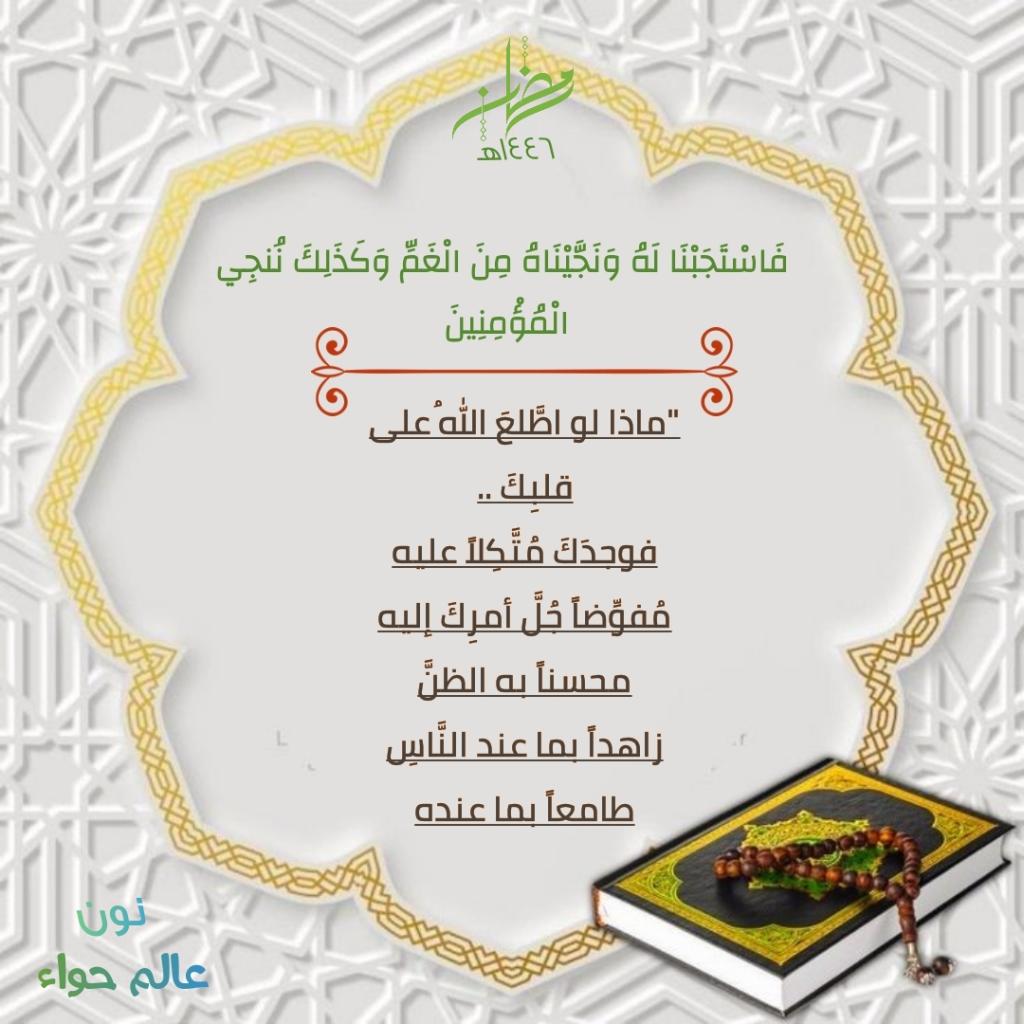 رمضان
١٤٤٦هـ
فَاسْتَجَبْنَا لَهُ وَنَجَّيْنَاهُ مِنَ الْغَمِّ وَكَذَلِكَ نُنجِي
الْمُؤْمِنِينَ
"ماذا لو اطَّلعَ اللهُ على
قلبِكَ ..
فوجدَكَ مُتَّكِلاً عليه
مُفوِّضاً جُلَّ أمرِكَ إليه
محسناً به الظنَّ
زاهداً بما عند النَّاسِ
طامعاً بما عنده
نون
عالم حواء